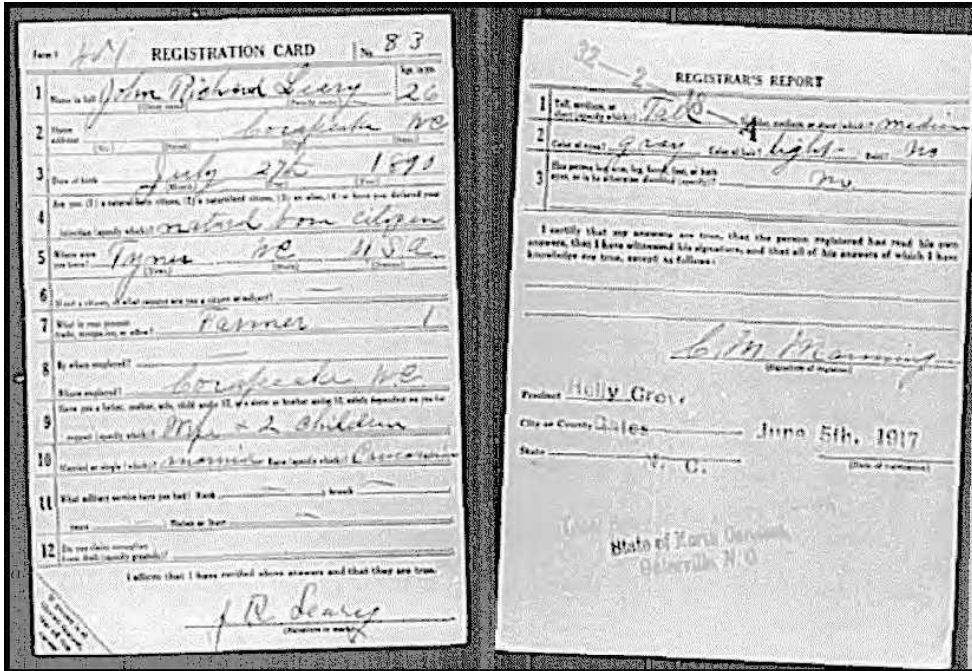 Form 1 REGISTRATION CARD No. 83
1 Name in full John Richard Leary Age, in yrs. 26
2 Home address Corapeake NC
3 Date of birth July 27th 1890
(Month) (Day) (Year)
Are you (1) a natural-born citizen, (2) a naturalized citizen, (3) an alien, (4) or have you declared your
4 intention (specify which)? natural born citizen
5 Where were you born? Tyner NC USA
(Town) (State)
6 If not a citizen, of what country are you a citizen or subject?
7 What is your present trade, occupation, or office? Farmer 1
8 By whom employed?
Where employed? Corapeake NC
Have you a father, mother, wife, child under 12, or a sister or brother under 12, solely dependent on you for
9 support (specify which)? Wife + 2 children
10 Married or single (which)? married Race (specify which)? Caucasian
11 What military service have you had? Rank branch
years Nation or State
12 Do you claim exemption from draft (specify grounds)?
I affirm that I have verified above answers and that they are true.
J R Leary
(Signature or mark)
32-2-18-A
REGISTRAR'S REPORT
1 Tall, medium, or short (specify which)? Tall Slender, medium, or stout (which)? medium
2 Color of eyes? gray Color of hair? light Bald? No
3 Has person lost arm, leg, hand, foot, or both eyes, or is he otherwise disabled (specify)? No
I certify that my answers are true, that the person registered has read his own
answers, that I have witnessed his signature, and that all of his answers of which I have
knowledge are true, except as follows:
C. M. Manning
(Signature of registrar)
Precinct Holly Grove
City or County Gates June 5th, 1917
State N. C. (Date of registration)
State of North Carolina,
Gatesville, N. C.